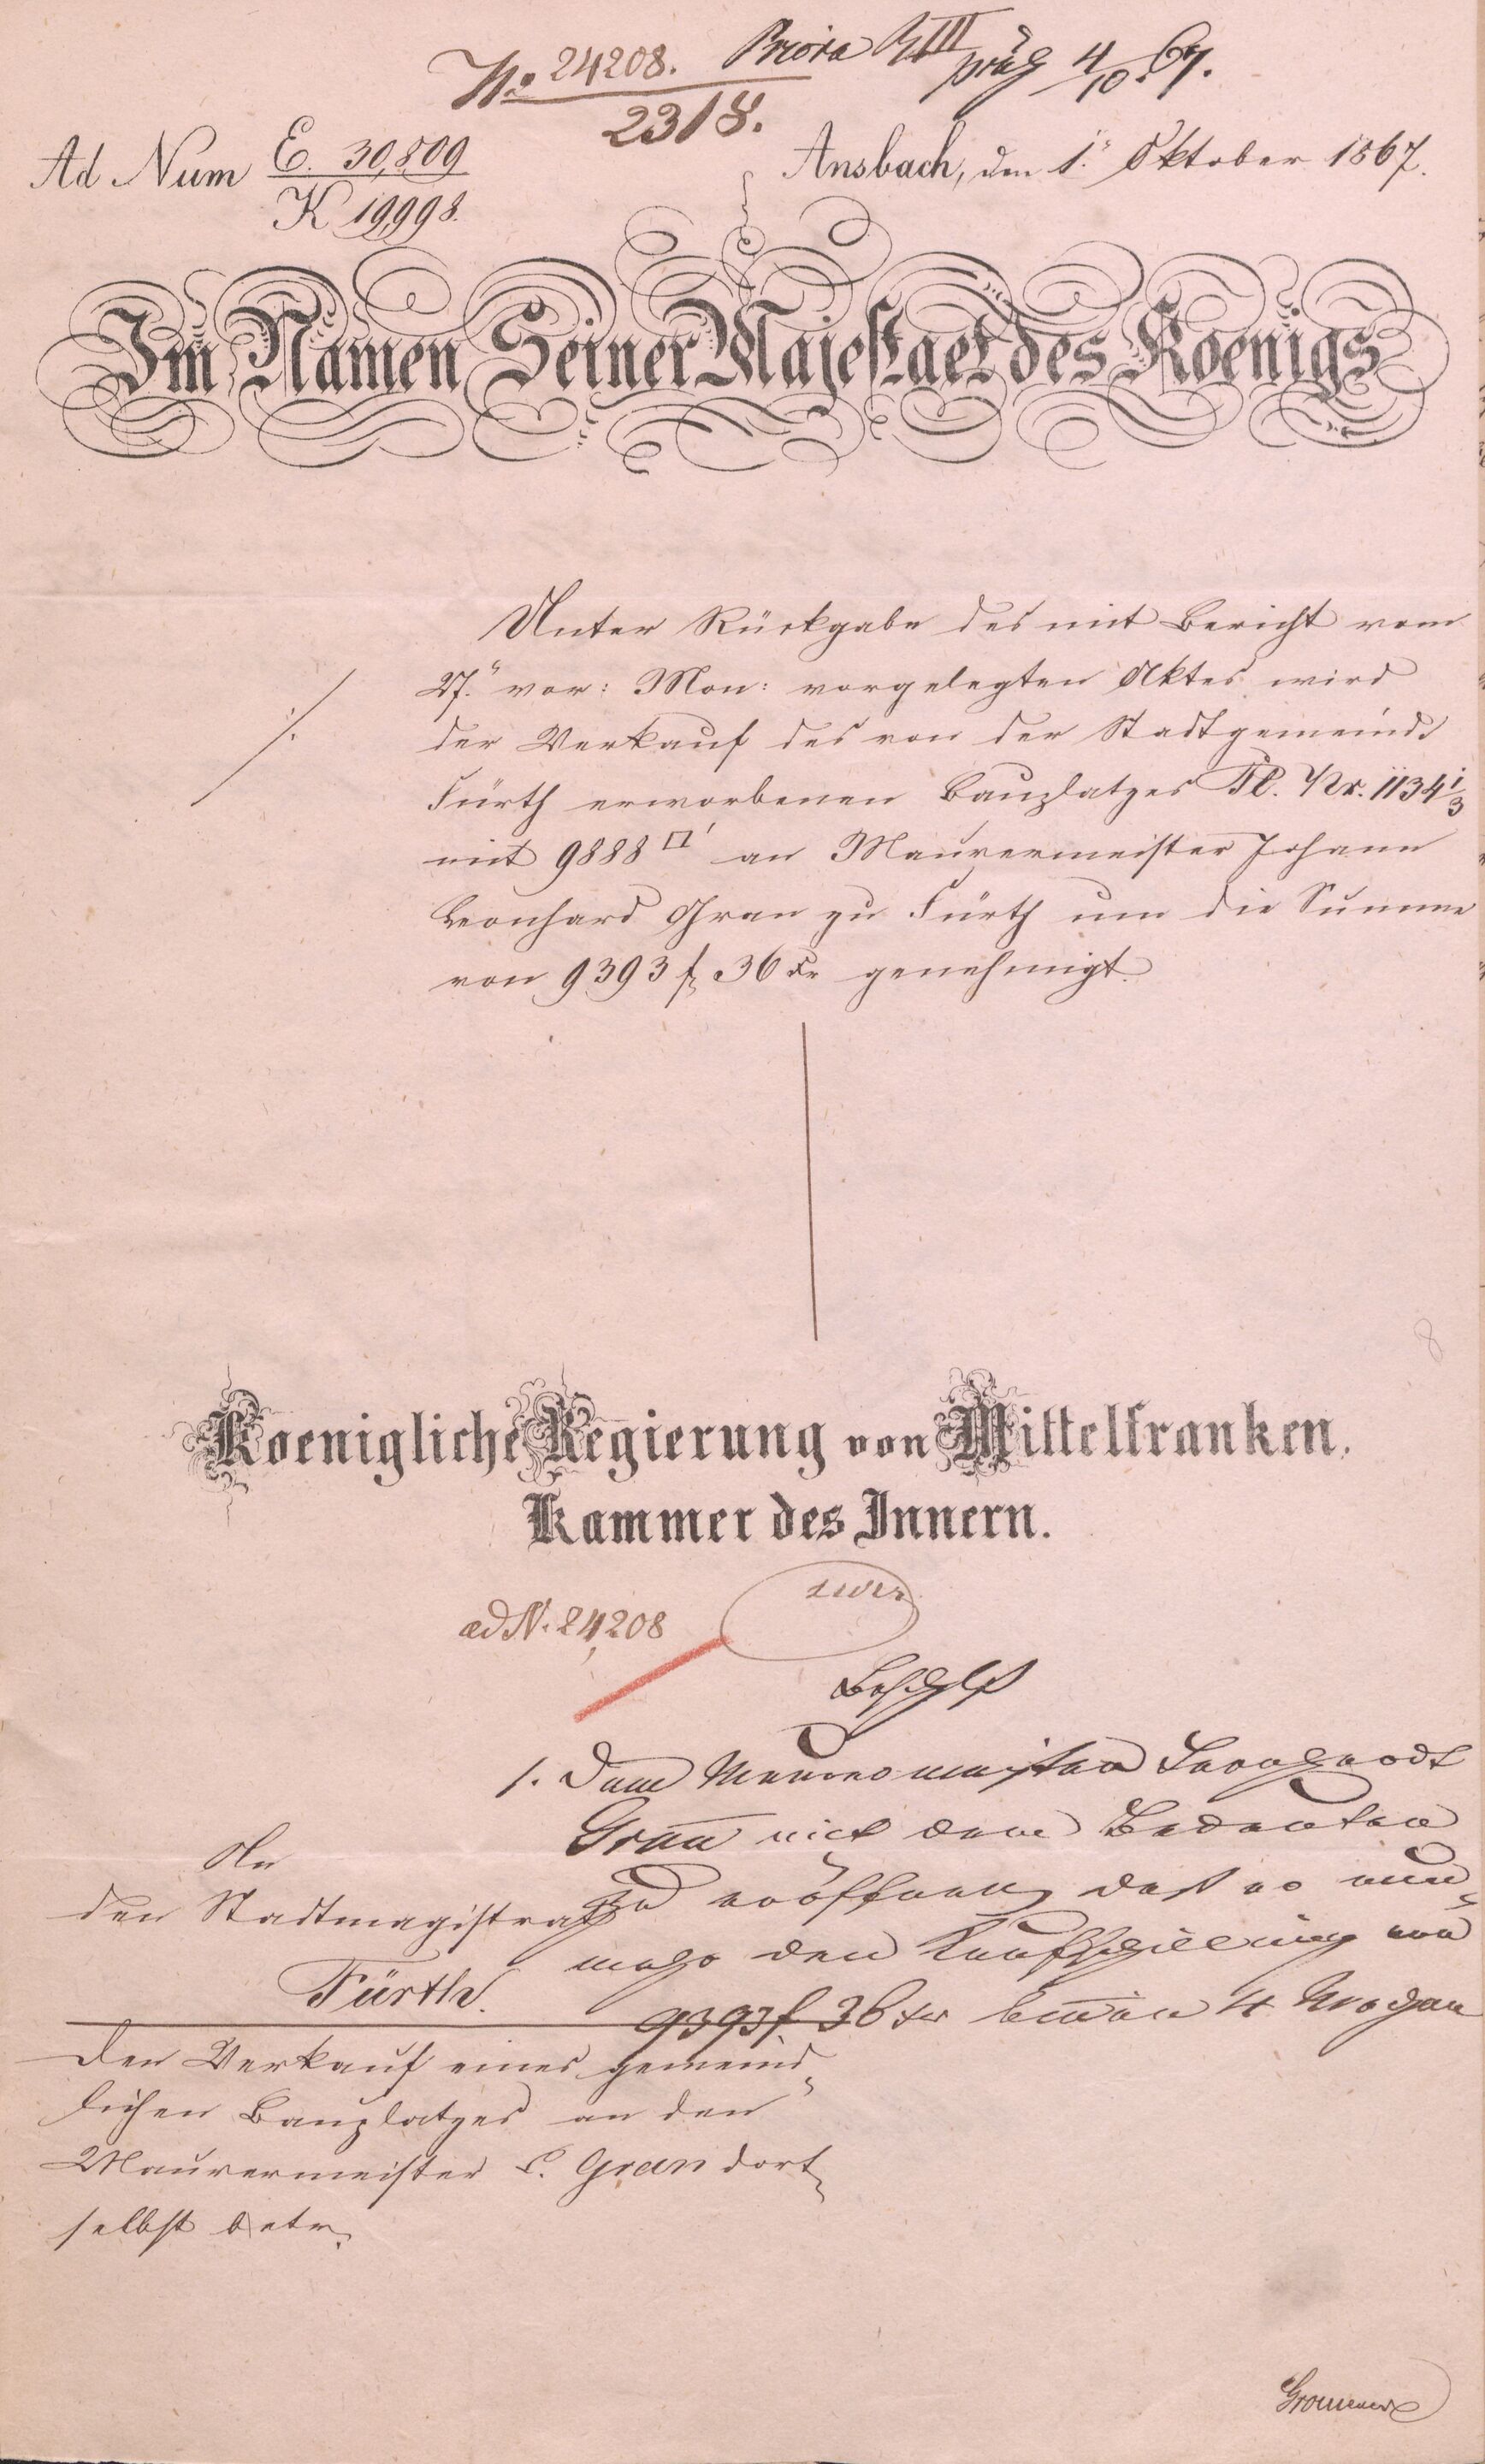 No 24208. Priora R III präs 4/10. 67.
2318.
Ad Num E. 30,809 Ansbach, den 1." Oktober 1867.
K 19,998.
Im Namen Seiner Majestaet des Koenigs
Unter Rückgabe des mit Bericht vom
27." vor: Mon: vorgelegten Aktes wird
./. der Verkauf des von der Stadtgemeinde
Fürth erworbenen Bauplatzes Pl. Nr. 1134 1/3
mit 9888 □' an Maurermeister Johann
Leonhard Gran zu Fürth um die Summe
von 9393 f 36 Xr genehmigt.
8
Koenigliche Regierung von Mittelfranken.
Kammer des Innern.
ad N. 24,208
Beschluß
1. Dem Maurermeister Leonhardt
Grau mit dem Bedeuten
zu eröffnen, daß er nun-
mehr den Kaufschilling von
9393 f. 36 xr binnen 4 Wochen
An
den Stadtmagistrat
Fürth.
Den Verkauf eines gemeind-
lichen Bauplatzes an den
Maurermeister L. Gran dort-
selbst betr.